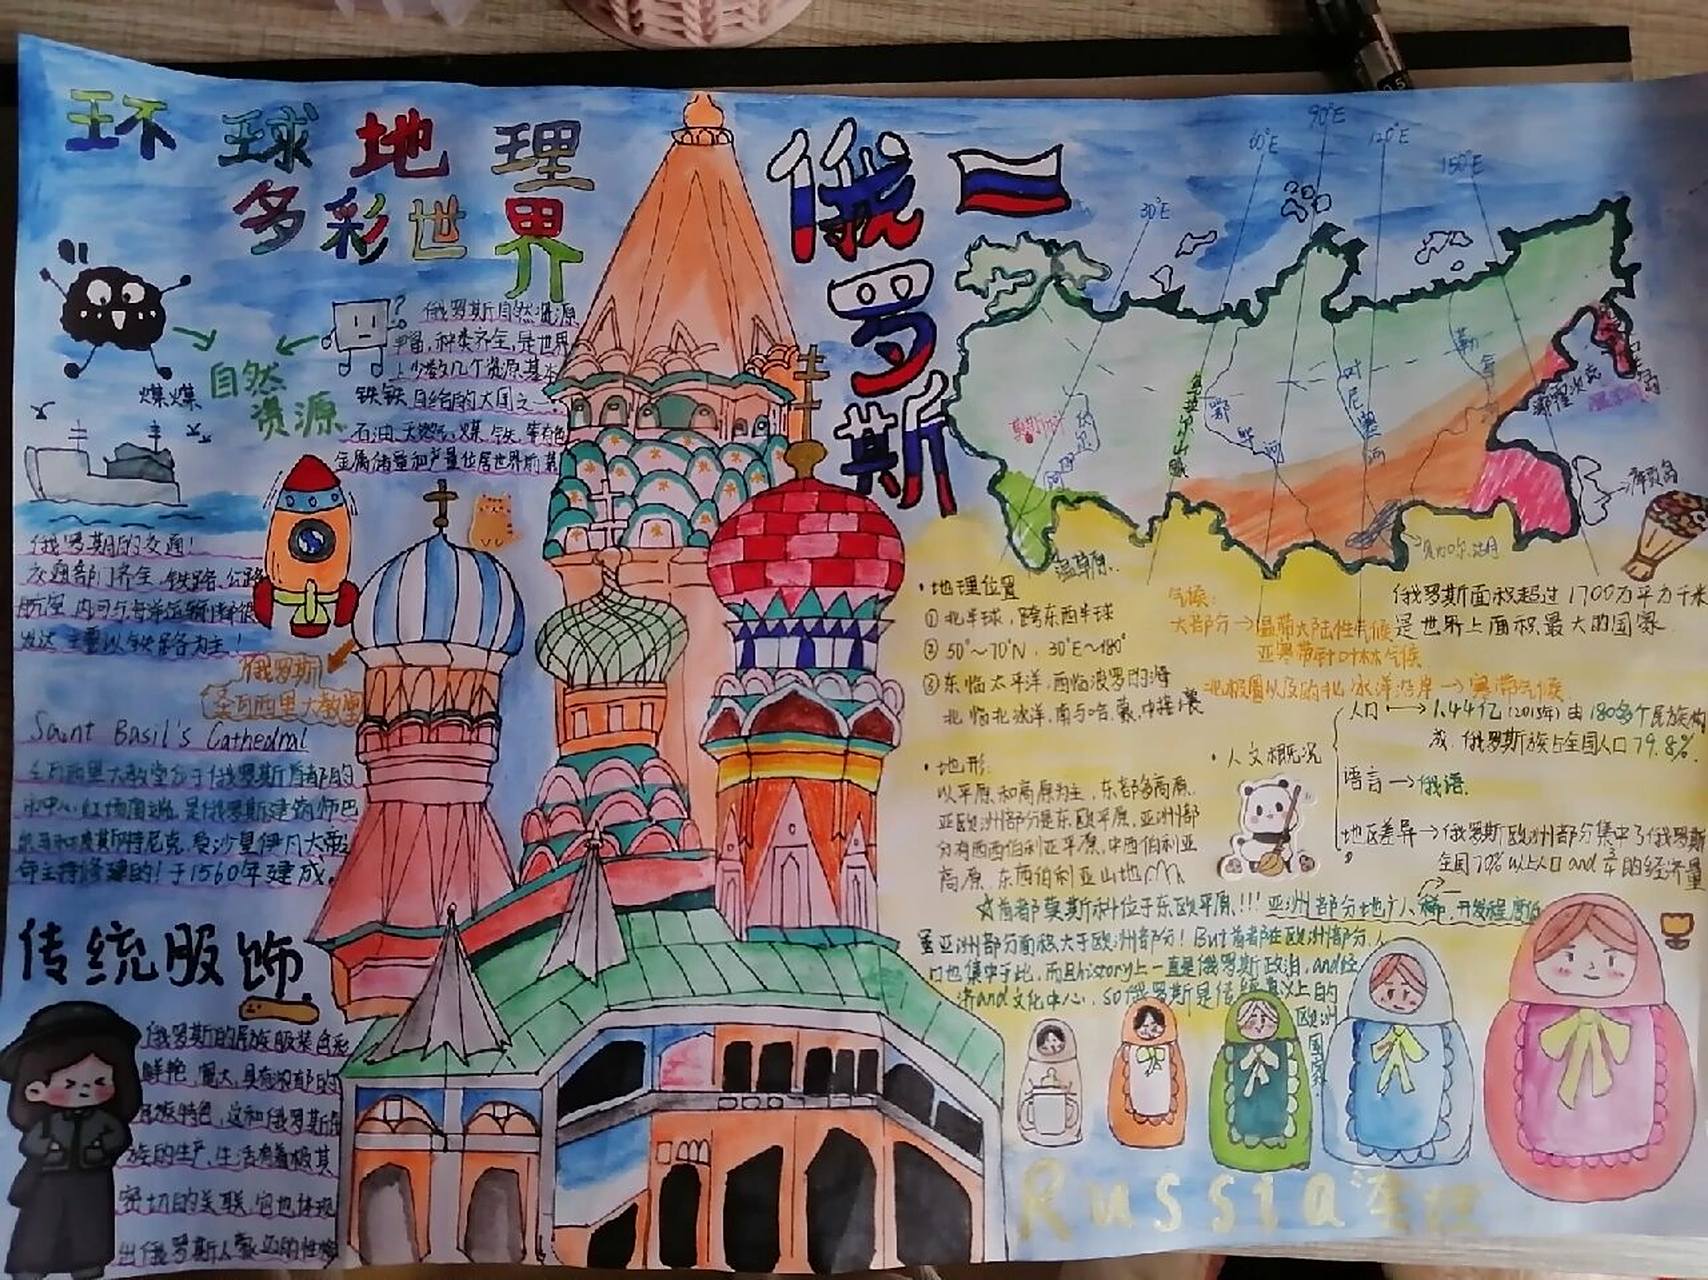 环球地理
多彩世界
俄罗斯
煤煤
自然
资源
铁铁
俄罗斯自然资源
丰富，种类齐全，是世界
上少数几个资源基本
自给的大国之一
石油、天然气、煤、铁、等有色
金属储量和产量位居世界前茅
俄罗斯的交通！
交通部门齐全，铁路、公路
航空、内河与海洋运输
发达 主要以铁路为主！
俄罗斯
圣瓦西里大教堂
Saint Basil's Cathedral
圣瓦西里大教堂位于俄罗斯首都的
市中心，红场南端，是俄罗斯建筑师巴
受沙皇伊凡大帝之
命主持修建的！于1560年建成。
传统服饰
俄罗斯的民族服装色彩
鲜艳、宽大，具有浓郁的
民族特色，这和俄罗斯民
族的生产、生活有着极其
密切的关联，它也体现
出俄罗斯人豪迈的性格
30°E
60°E
90°E
120°E
150°E
莫斯科
伏尔
加河
乌拉尔山脉
鄂毕河
叶尼塞河
勒拿河
鄂霍次克
库页岛
贝加尔湖
温草原
·地理位置
① 北半球，跨东西半球
② 50°~70°N，30°E~180°
③ 东临太平洋，西临波罗的海
北临北冰洋，南与哈、蒙、中接壤
·地形：
以平原和高原为主，东部多高原
亚欧洲部分是东欧平原，亚洲部
分有西西伯利亚平原，中西伯利亚
高原，东西伯利亚山地
☆首都莫斯科位于东欧平原！！！亚洲部分地广人稀，开发程度低
虽亚洲部分面积大于欧洲部分！But首都在欧洲部分，人
口也集中于此，而且history上一直是俄罗斯政治，and经
济and文化中心，so俄罗斯是传统意义上的
欧洲
国家
气候：
大部分→温带大陆性气候
亚寒带针叶林气候
北极圈以及的北冰洋沿岸→寒带气候
俄罗斯面积超过1700万平方千米
是世界上面积最大的国家
·人文概况
人口→1.44亿(2015年)由180多个民族构
成，俄罗斯族占全国人口79.8%
语言→俄语
地区差异→俄罗斯欧洲部分集中了俄罗斯
全国70%以上人口and 3/4的经济量
Russia